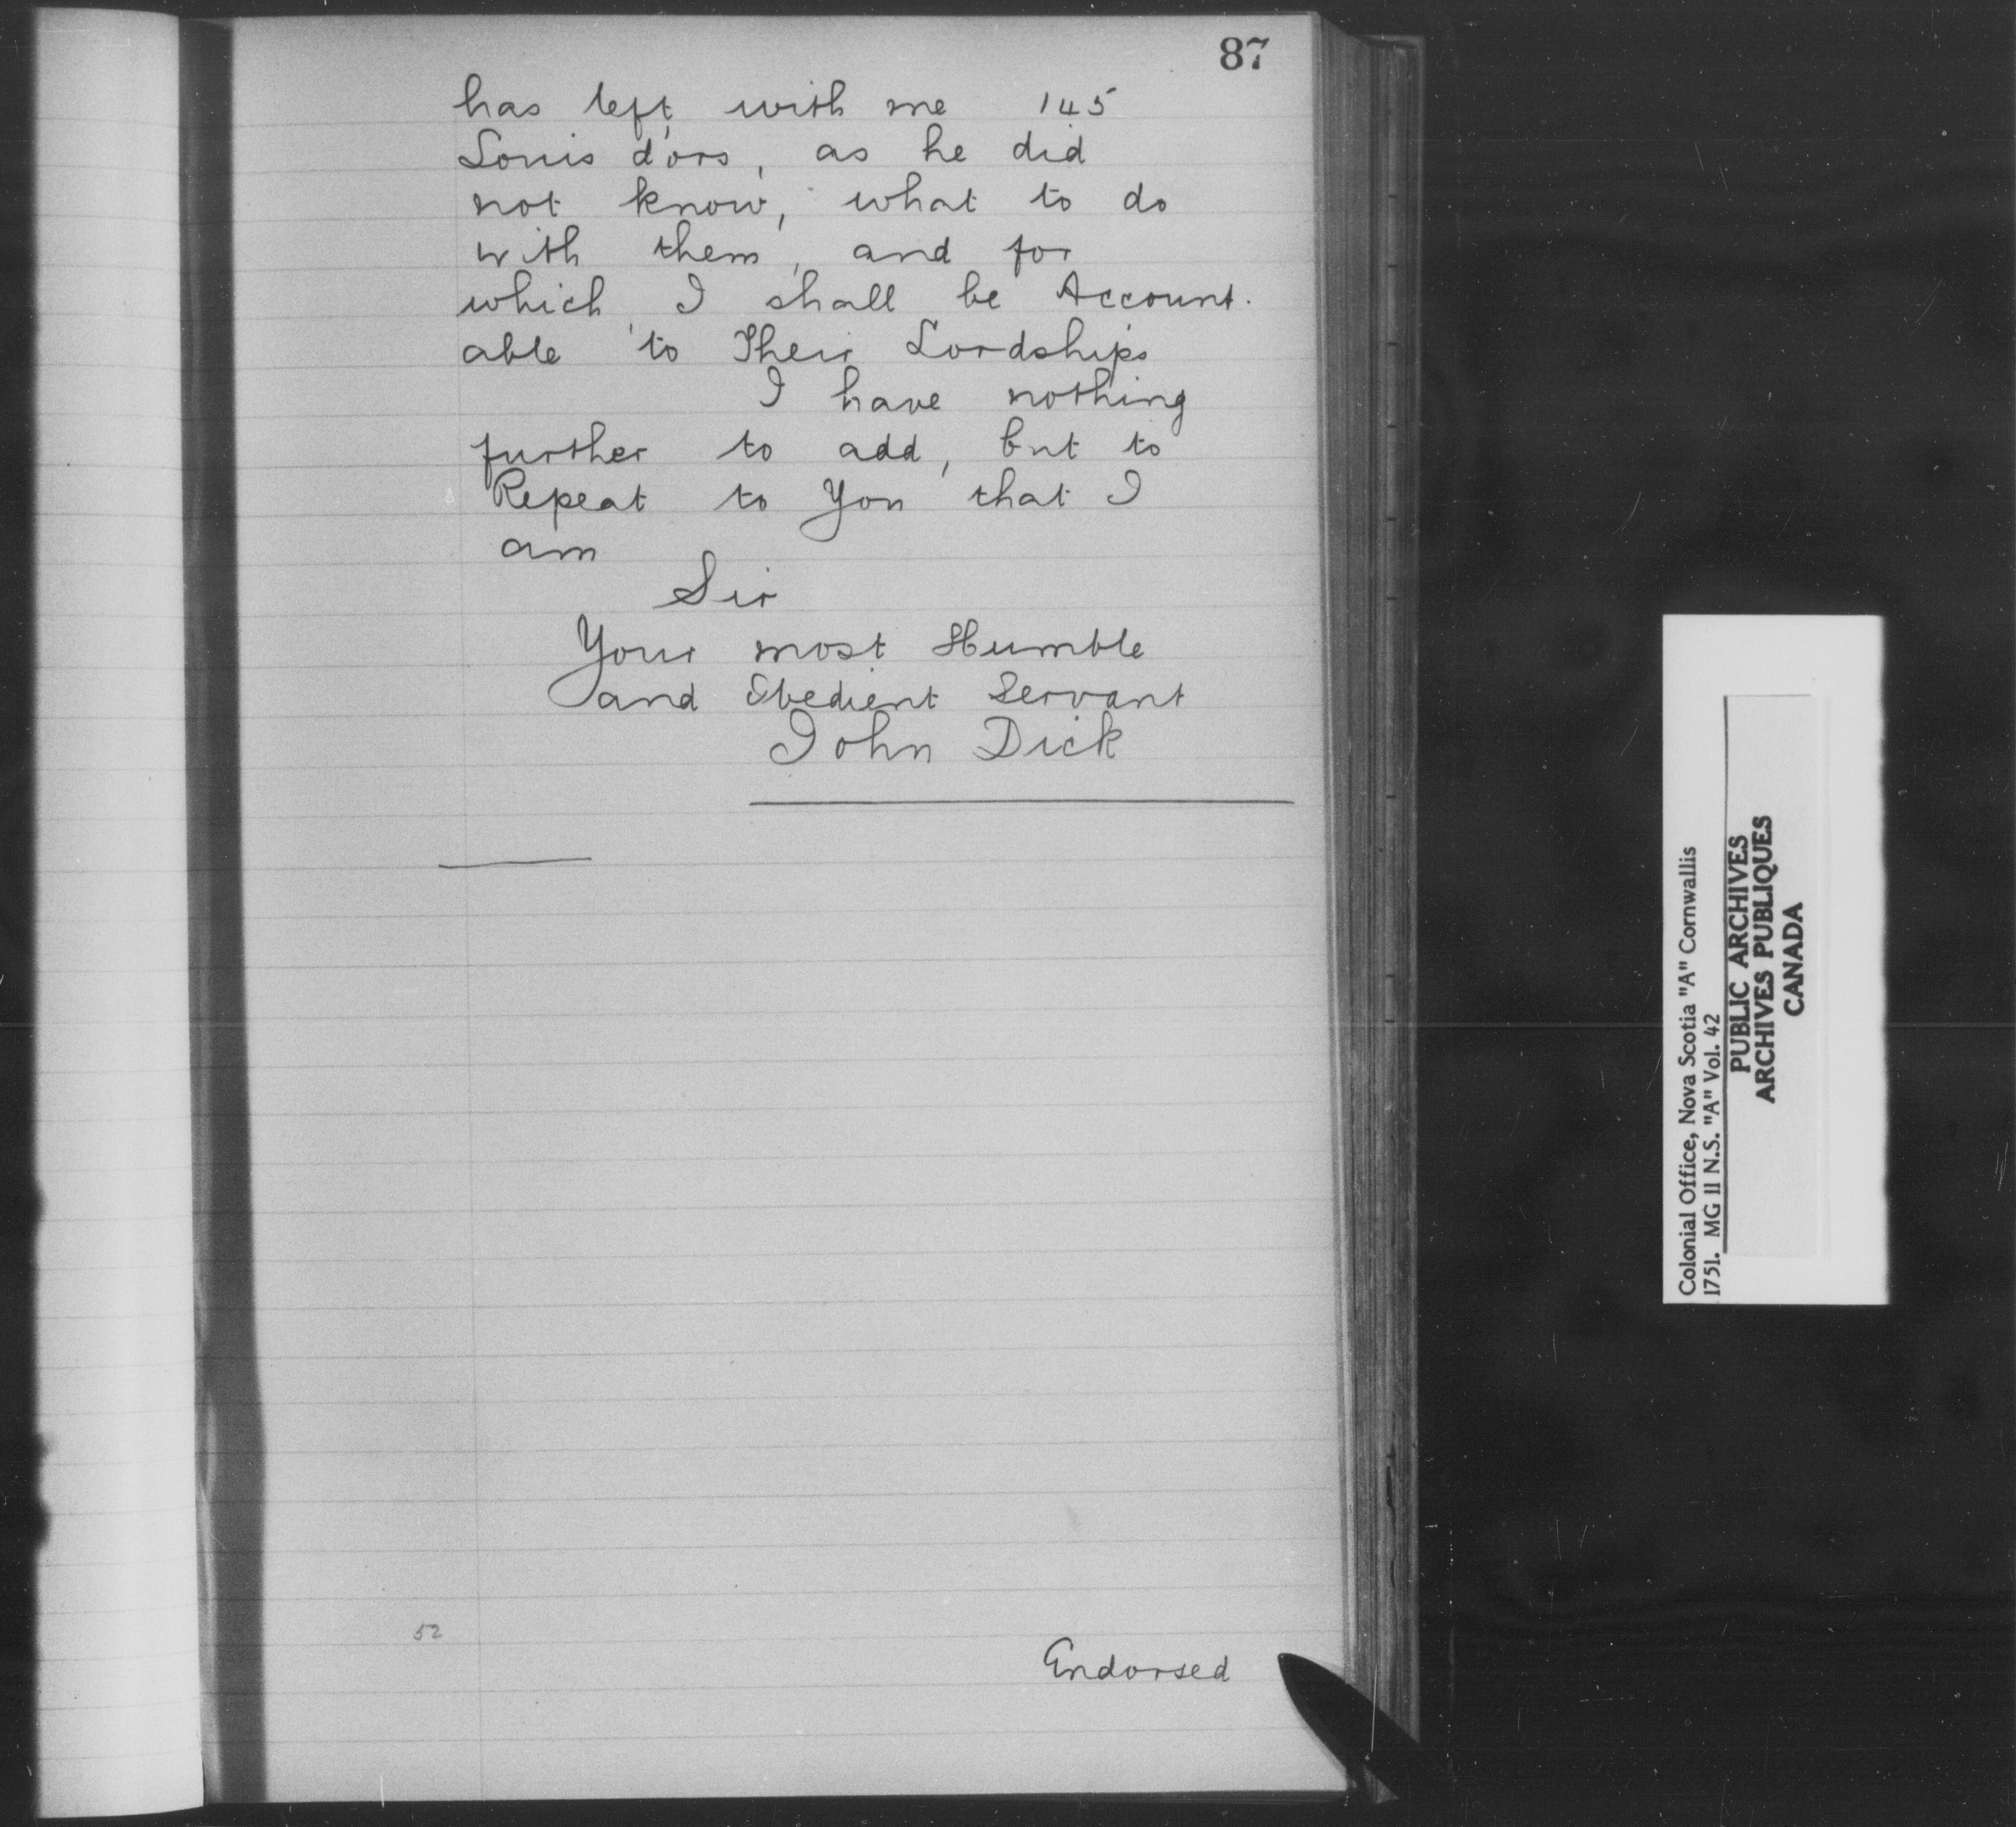 87
has left with me 145
Louis d'ors, as he did
not know, what to do
with them, and for
which, I shall be Account.
able to Their Lordships
I have nothing
further to add, but to
Repeat to You that I
am
Sir
Your most Humble
and Obedient Servant
John Dick
52
Endorsed
Colonial Office, Nova Scotia "A" Cornwallis
1751. MG 11 N.S. "A" Vol. 42
PUBLIC ARCHIVES
ARCHIVES PUBLIQUES
CANADA